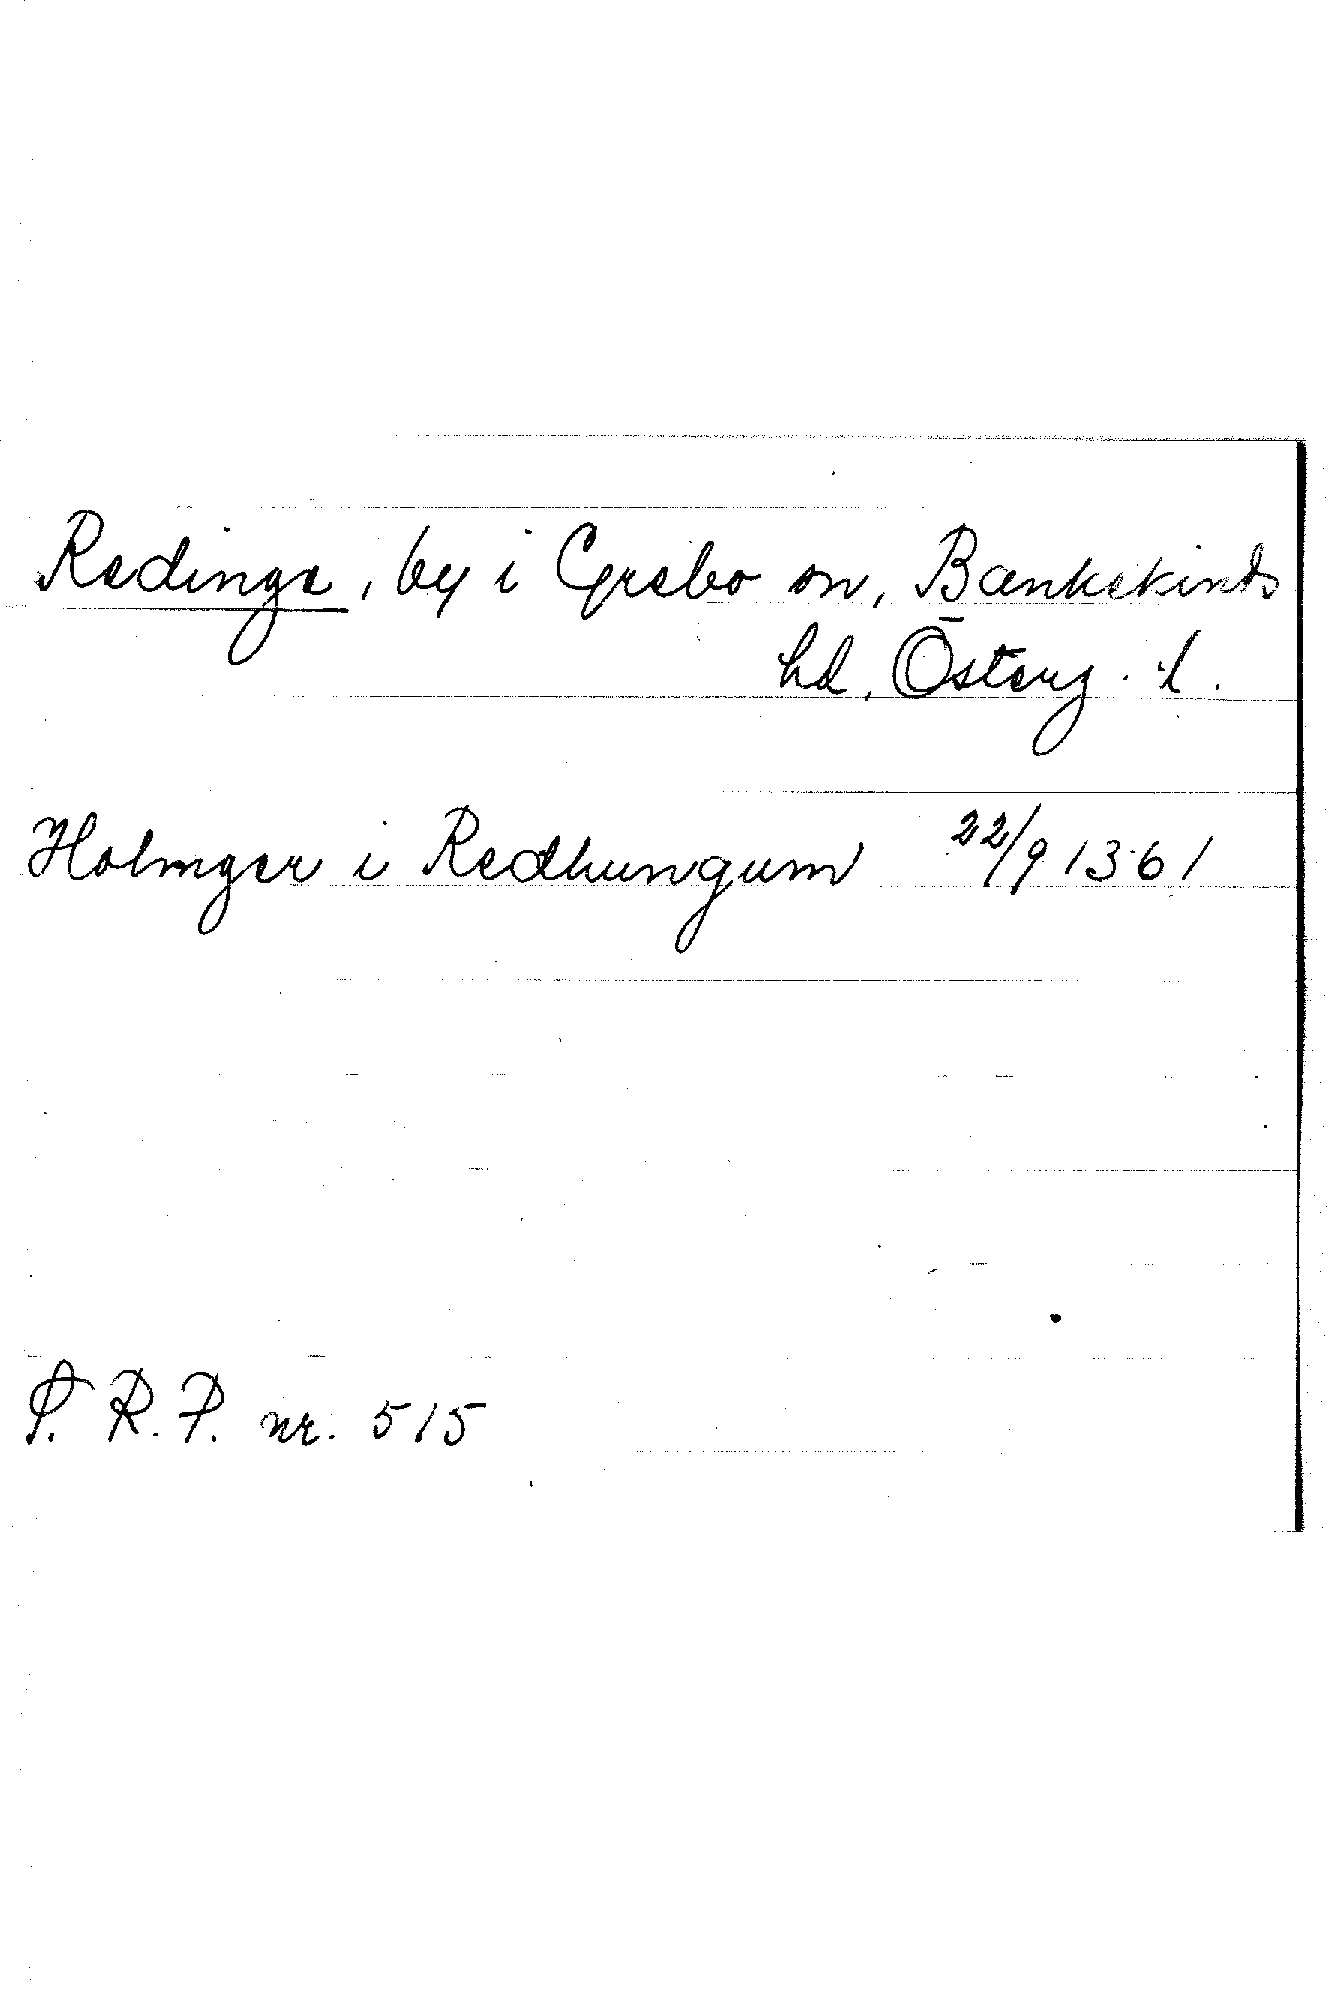 Redinge, by i Grebo sn, Bankekinds
hd, Österg. l.
Holmger i Redhungum 22/9 1361
S. R. P. nr. 515